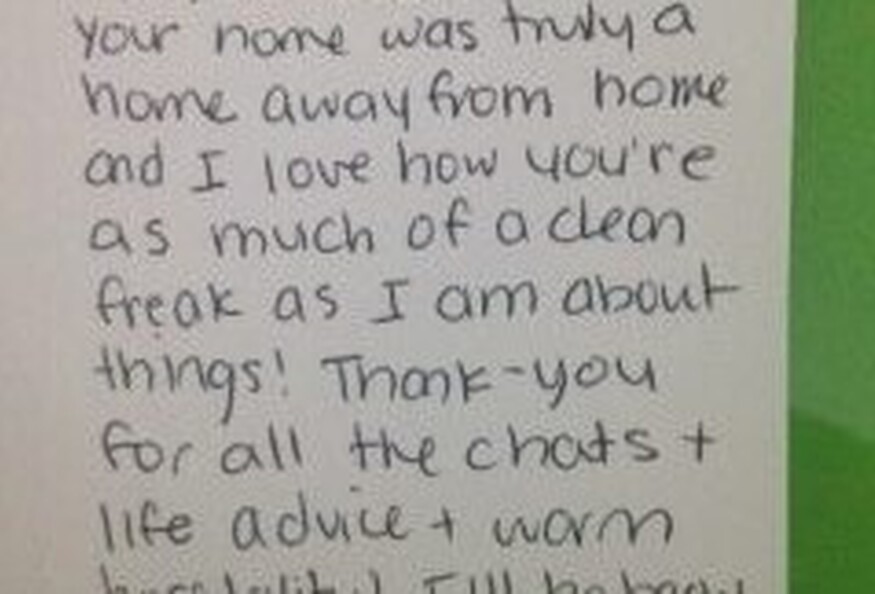 your home was truly a
home away from home
and I love how you're
as much of a clean
freak as I am about
things! Thank-you
for all the chats +
life advice + warm